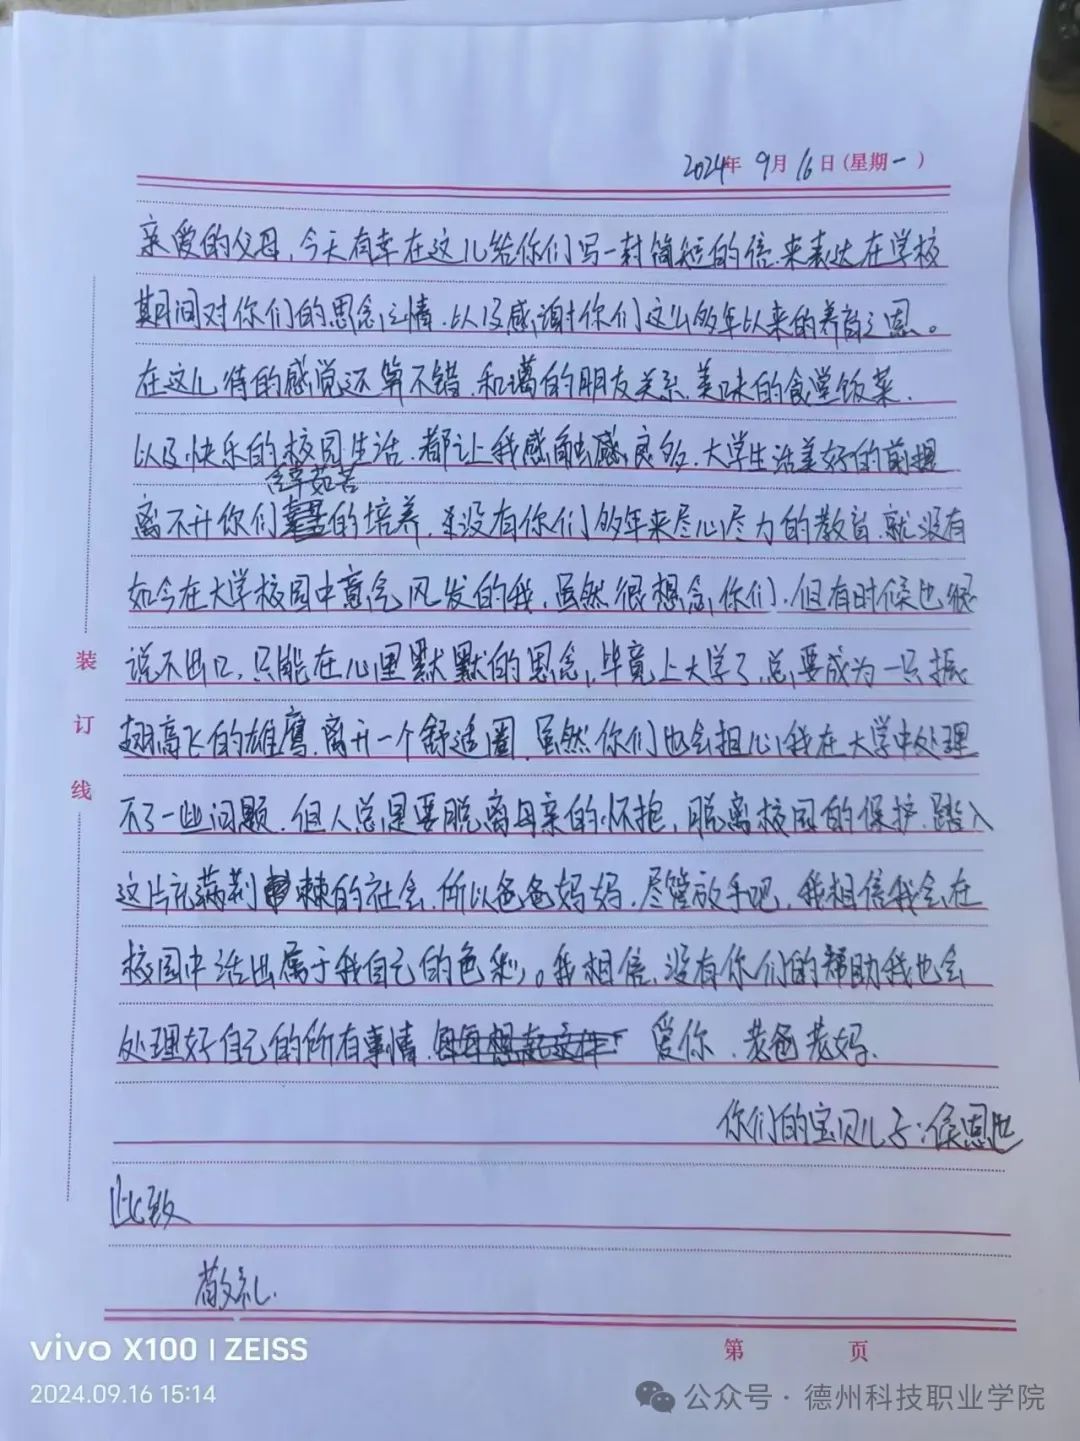 2024年 9月 16日(星期一)
亲爱的父母,今天有幸在这儿给你们写一封简短的信.来表达在学校
期间对你们的思念之情.以及感谢你们这么多年以来的养育之恩。
在这儿待的感觉还算不错.和蔼的朋友关系.美味的食堂饭菜.
以及快乐的校园生活.都让我感触感良多.大学生活美好的前提
含辛茹苦
离不开你们的培养.若没有你们多年来尽心尽力的教育.就没有
如今在大学校园中意气风发的我.虽然很想念你们.但有时候也很
说不出口,只能在心里默默的思念,毕竟上大学了,总要成为一只振
翅高飞的雄鹰.离开一个舒适圈.虽然你们也会担心我在大学中处理
不了一些问题.但人总是要脱离母亲的怀抱,脱离校园的保护.踏入
这片充满荆棘的社会.所以爸爸妈妈.尽管放手吧,我相信我会在
校园中活出属于我自己的色彩。我相信.没有你们的帮助我也会
处理好自己的所有事情.爱你.老爸老妈.
你们的宝贝儿子:侯恩
此致
敬礼.
装
订
线
第 页
vivo X100 | ZEISS
2024.09.16 15:14
公众号 · 德州科技职业学院